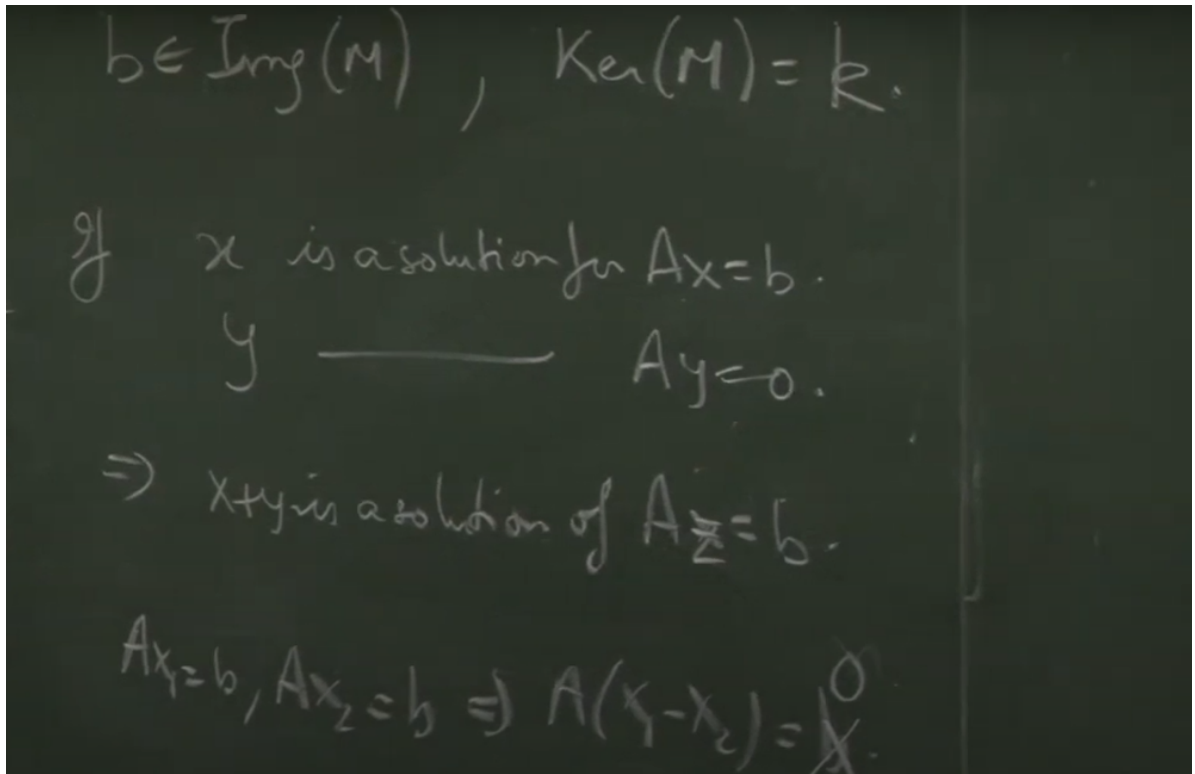 b ∈ Img(M), Ker(M) = k.
If x is a solution for Ax=b.
y ——— Ay=0.
⇒ x+y is a solution of Az=b.
Ax₁=b, Ax₂=b ⇒ A(x₁-x₂)=0.